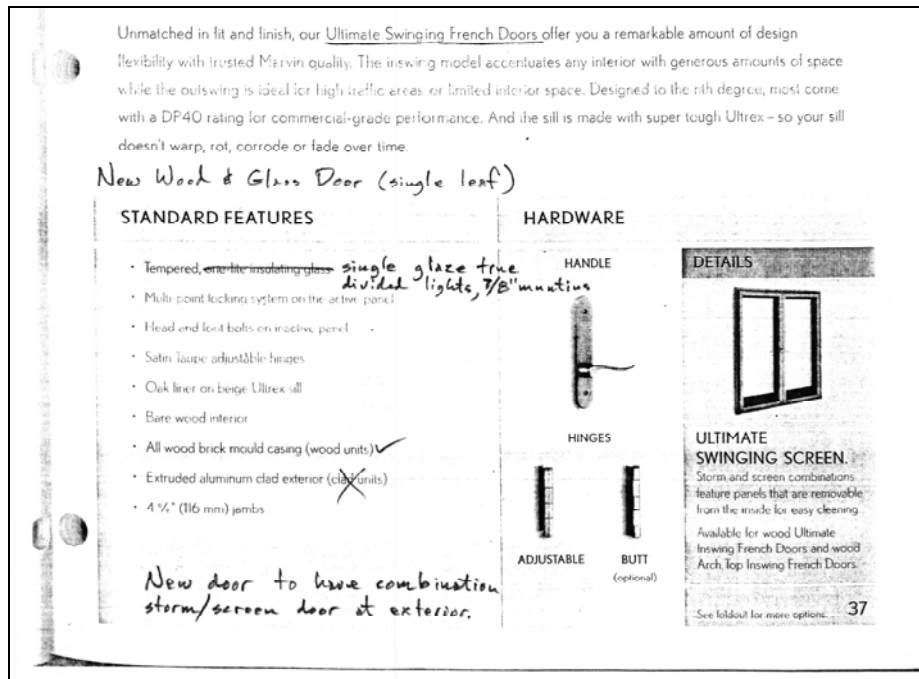 Unmatched in fit and finish, our Ultimate Swinging French Doors offer you a remarkable amount of design
flexibility with trusted Marvin quality. The inswing model accentuates any interior with generous amounts of space
while the outswing is ideal for high traffic areas or limited interior space. Designed to the nth degree, most come
with a DP40 rating for commercial-grade performance. And the sill is made with super tough Ultrex – so your sill
doesn't warp, rot, corrode or fade over time.
New Wood & Glass Door (single leaf)
STANDARD FEATURES
• Tempered, one-lite insulating glass single glaze true
divided lights, 7/8" muntins
• Multi-point locking system on the active panel
• Head and foot bolts on inactive panel
• Satin Taupe adjustable hinges
• Oak liner on beige Ultrex sill
• Bare wood interior
• All wood brick mould casing (wood units) ✓
• Extruded aluminum clad exterior (clad units)
• 4 9/16" (116 mm) jambs
New door to have combination
storm/screen door at exterior.
HARDWARE
HANDLE
HINGES
ADJUSTABLE
BUTT
(optional)
DETAILS
ULTIMATE
SWINGING SCREEN.
Storm and screen combinations
feature panels that are removable
from the inside for easy cleaning.
Available for wood Ultimate
Inswing French Doors and wood
Arch Top Inswing French Doors.
See foldout for more options.
37